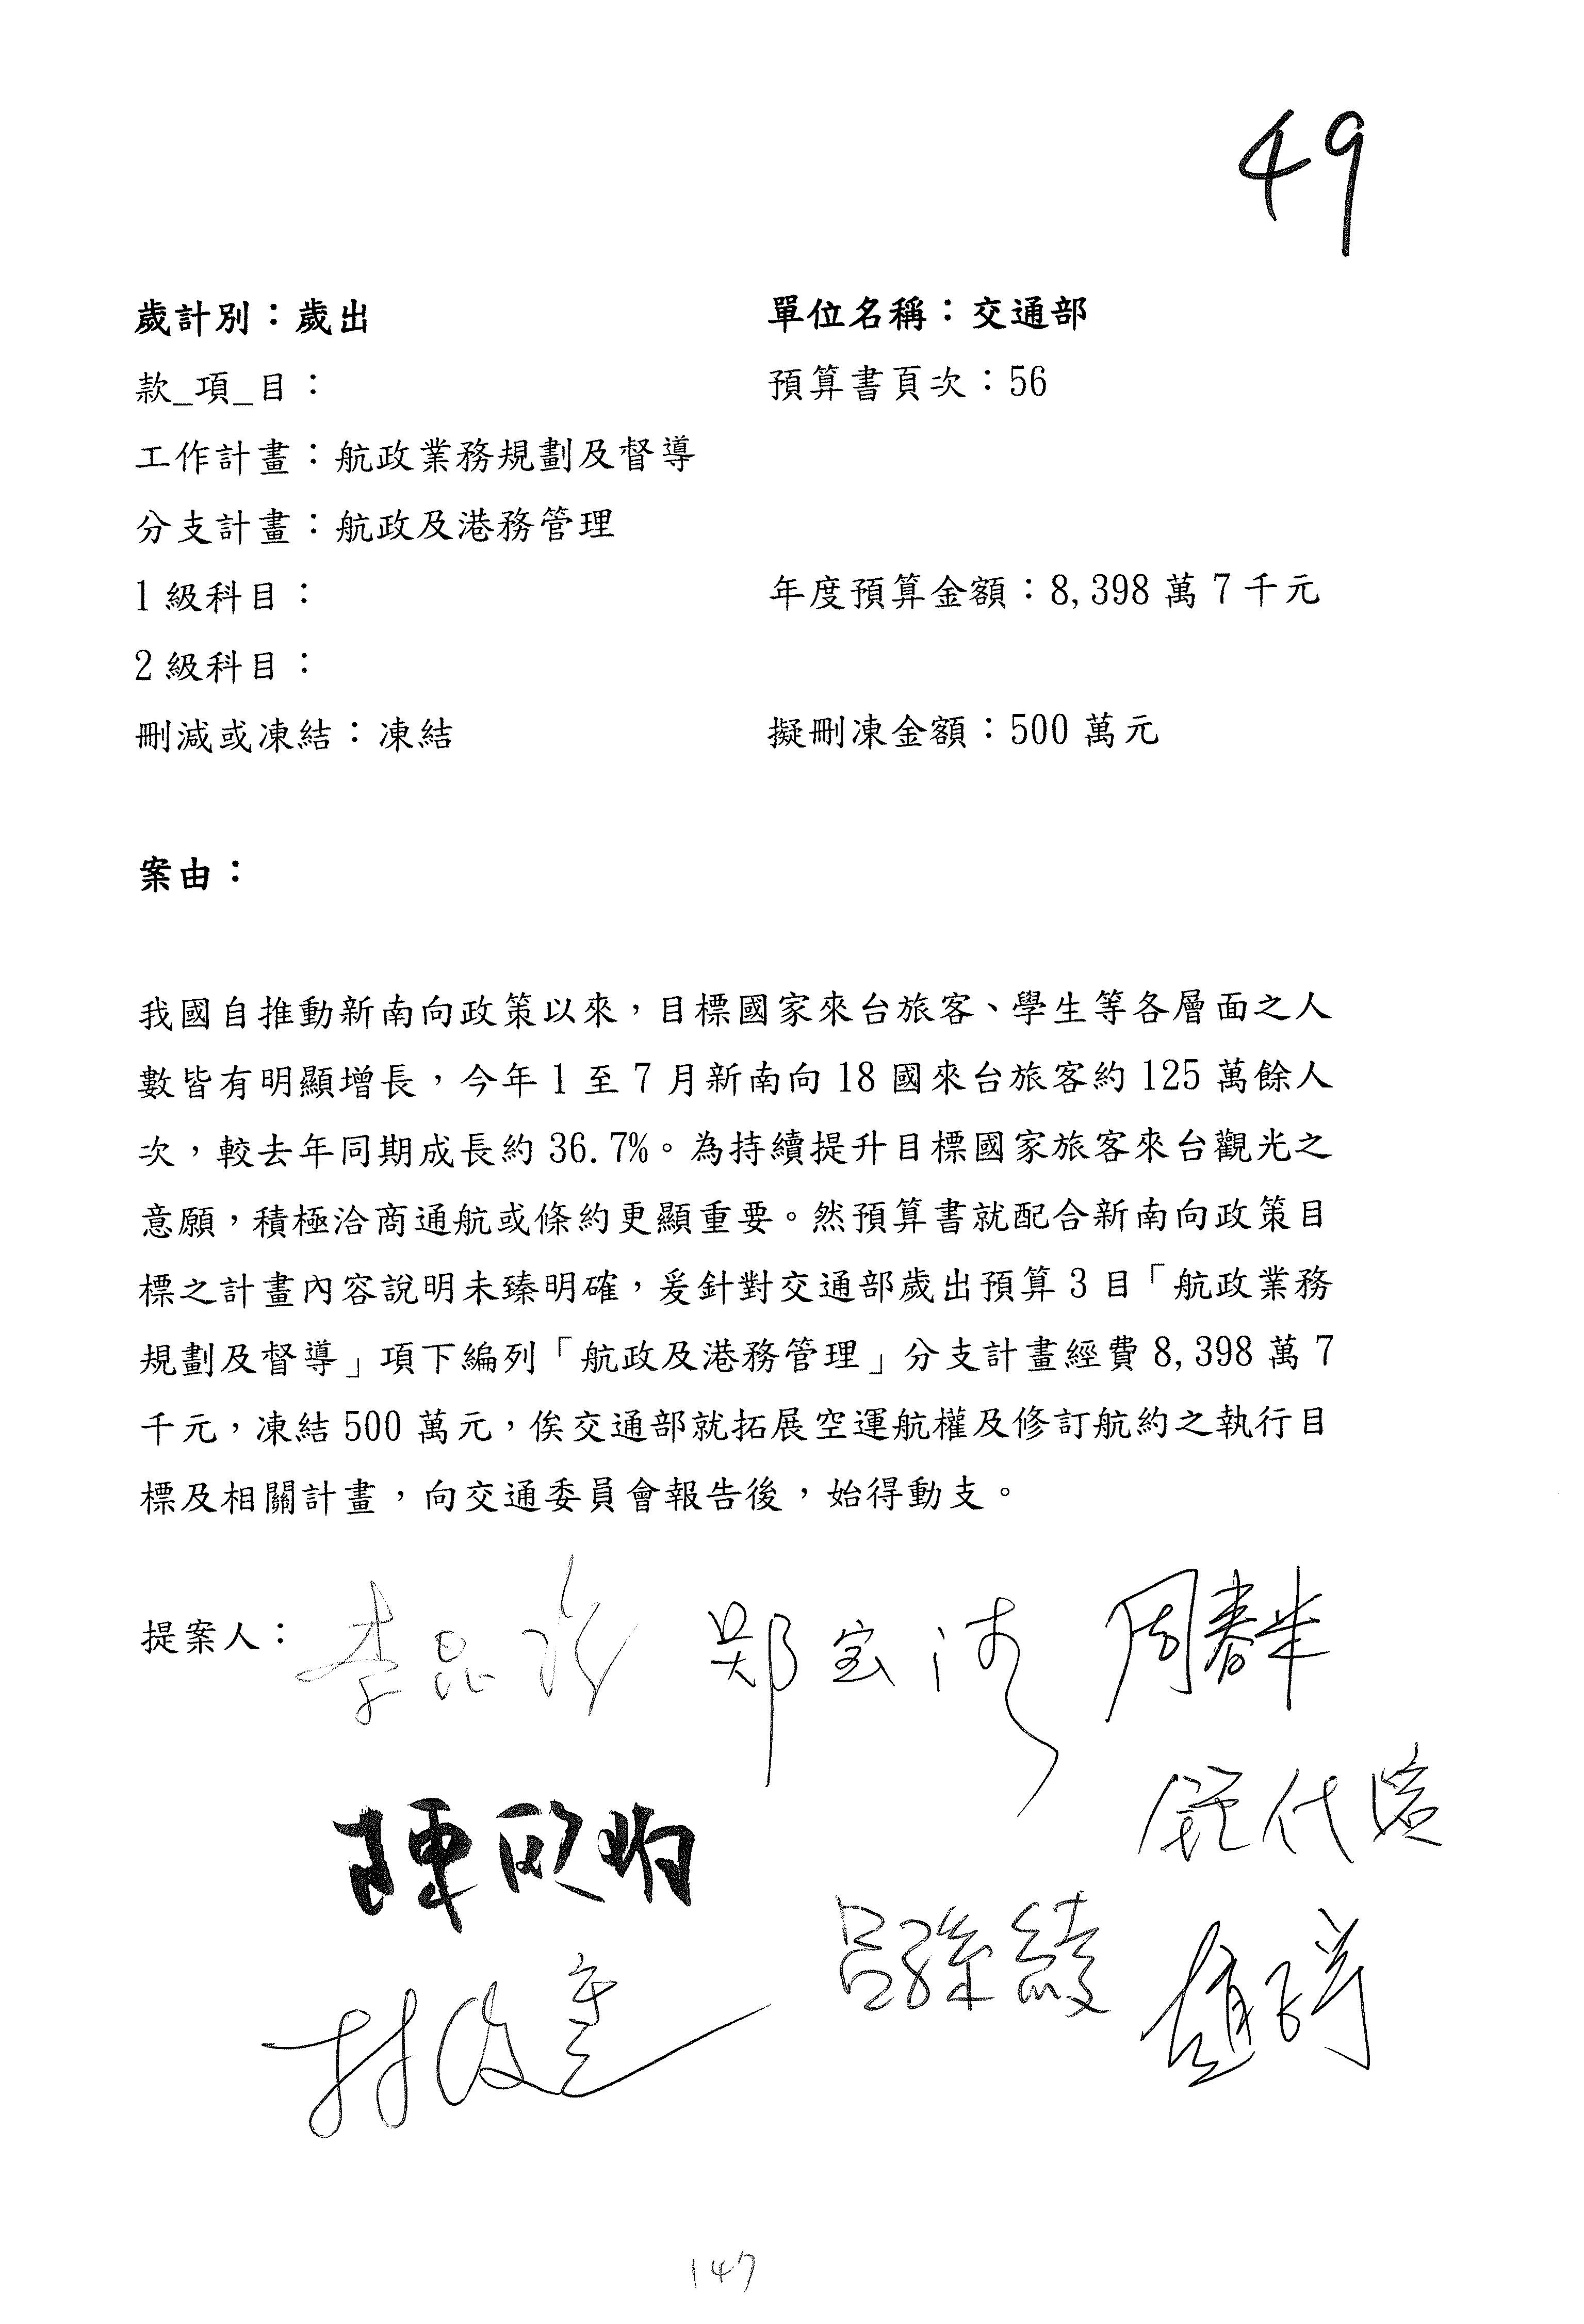 49
歲計別：歲出 單位名稱：交通部
款_項_目： 預算書頁次：56
工作計畫：航政業務規劃及督導
分支計畫：航政及港務管理
1 級科目： 年度預算金額：8,398 萬 7 千元
2 級科目：
刪減或凍結：凍結 擬刪凍金額：500 萬元
案由：
我國自推動新南向政策以來，目標國家來台旅客、學生等各層面之人
數皆有明顯增長，今年 1 至 7 月新南向 18 國來台旅客約 125 萬餘人
次，較去年同期成長約 36.7%。為持續提升目標國家旅客來台觀光之
意願，積極洽商通航或條約更顯重要。然預算書就配合新南向政策目
標之計畫內容說明未臻明確，爰針對交通部歲出預算 3 目「航政業務
規劃及督導」項下編列「航政及港務管理」分支計畫經費 8,398 萬 7
千元，凍結 500 萬元，俟交通部就拓展空運航權及修訂航約之執行目
標及相關計畫，向交通委員會報告後，始得動支。
提案人： 鄭宝清 周春米
呂孫綾
147